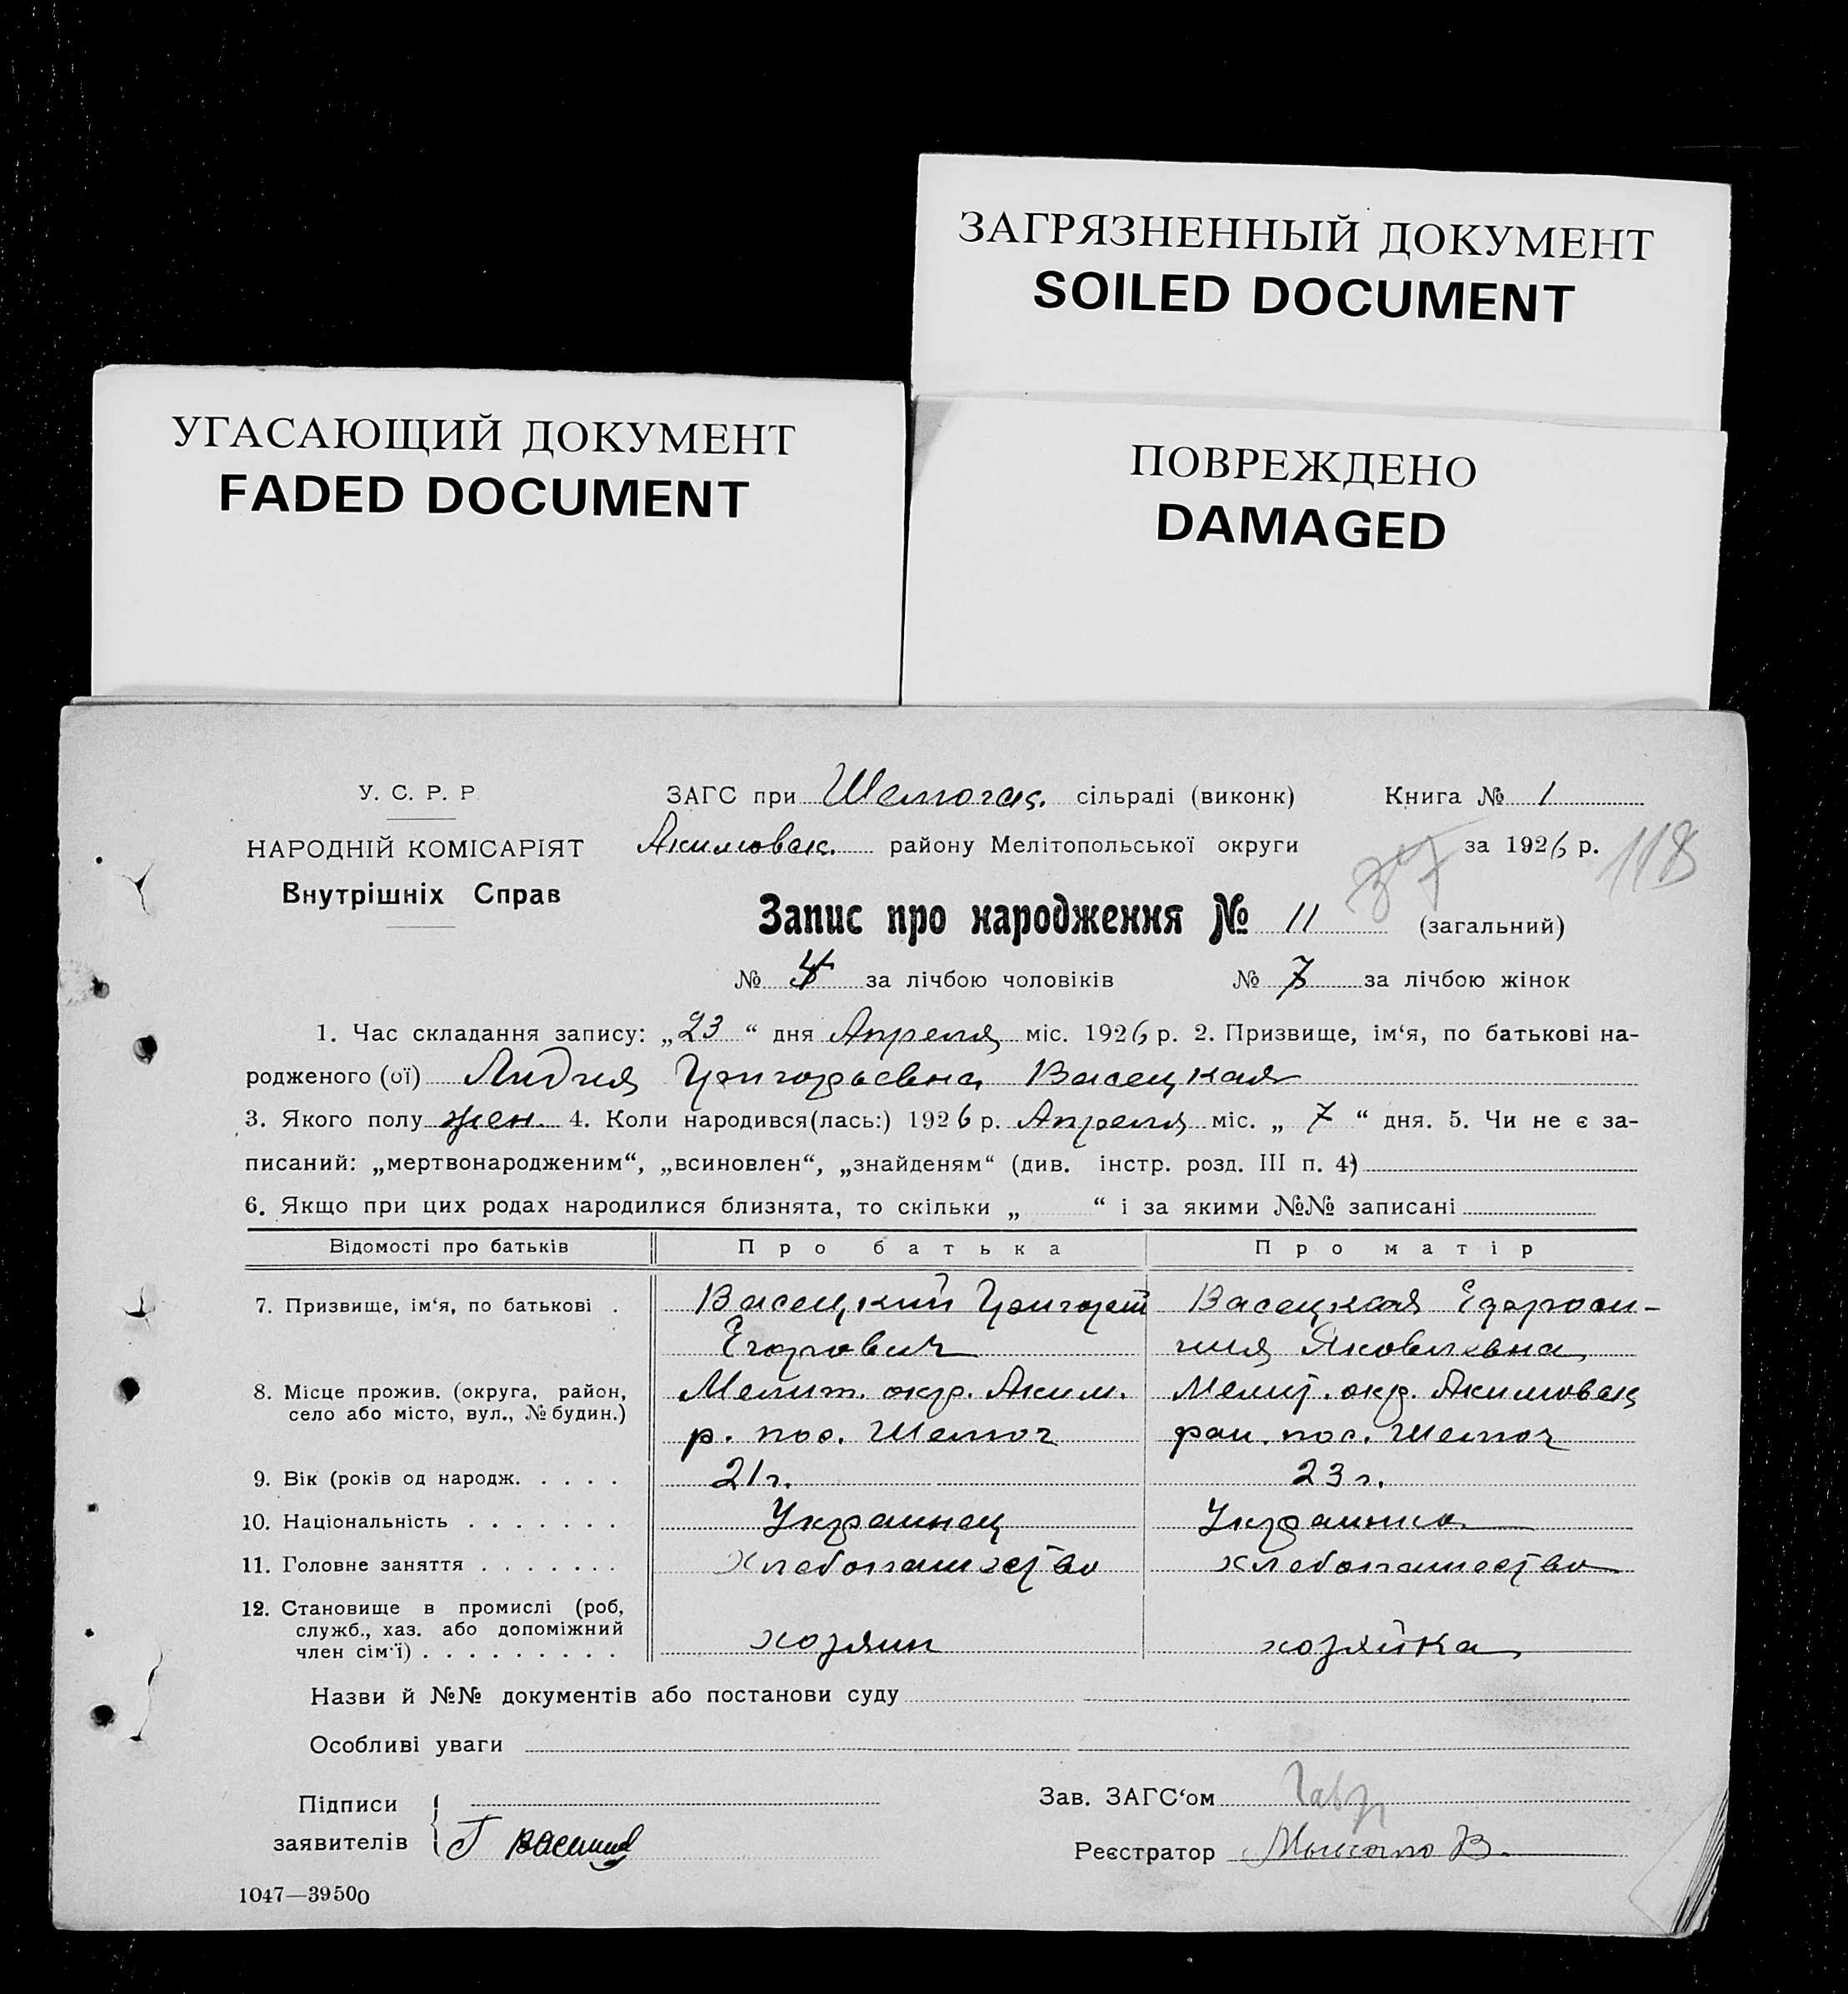 ЗАГРЯЗНЕННЫЙ ДОКУМЕНТ
SOILED DOCUMENT
УГАСАЮЩИЙ ДОКУМЕНТ
FADED DOCUMENT
ПОВРЕЖДЕНО
DAMAGED
У. С. Р. Р
НАРОДНІЙ КОМІСАРІЯТ
Внутрішніх Справ
ЗАГС при сільраді (виконк) Книга № 1
Акимовск. району Мелітопольської округи за 1926 р.
37 118
Запис про народження № 11 (загальний)
№ 4 за лічбою чоловіків № 7 за лічбою жінок
1. Час складання запису: „23“ дня Апреля міс. 1926 р. 2. Призвище, ім‘я, по батькові на-
родженого (ої) Лидия Григорьевна Васецкая
3. Якого полу жен. 4. Коли народився(лась:) 1926 р. Апреля міс. „ 7 “ дня. 5. Чи не є за-
писаний: „мертвонародженим“, „всиновлен“, „знайденям“ (див. інстр. розд. III п. 4)
6. Якщо при цих родах народилися близнята, то скільки „ “ і за якими №№ записані
Відомості про батьків Про батька Про матір
7. Призвище, ім‘я, по батькові . Васецкий Григорий Васецкая Ефроси-
Егорович ния Яковлевна
8. Місце прожив. (округа, район, Мелит. окр. Аким. Мелит. окр. Акимовск
село або місто, вул., № будин.) р. пос. рай. пос.
9. Вік (років од народж. . . . . 21 г. 23 г.
10. Національність . . . . . . . Украинец Украинка
11. Головне заняття . . . . . . . хлебопашество хлебопашество
12. Становище в промислі (роб,
служб., хаз. або допоміжний
член сім‘ї) . . . . . . . . . хозяин хозяйка
Назви й №№ документів або постанови суду
Особливі уваги
Підписи
заявителів Г
Зав. ЗАГС‘ом
Реєстратор В.
1047—39500